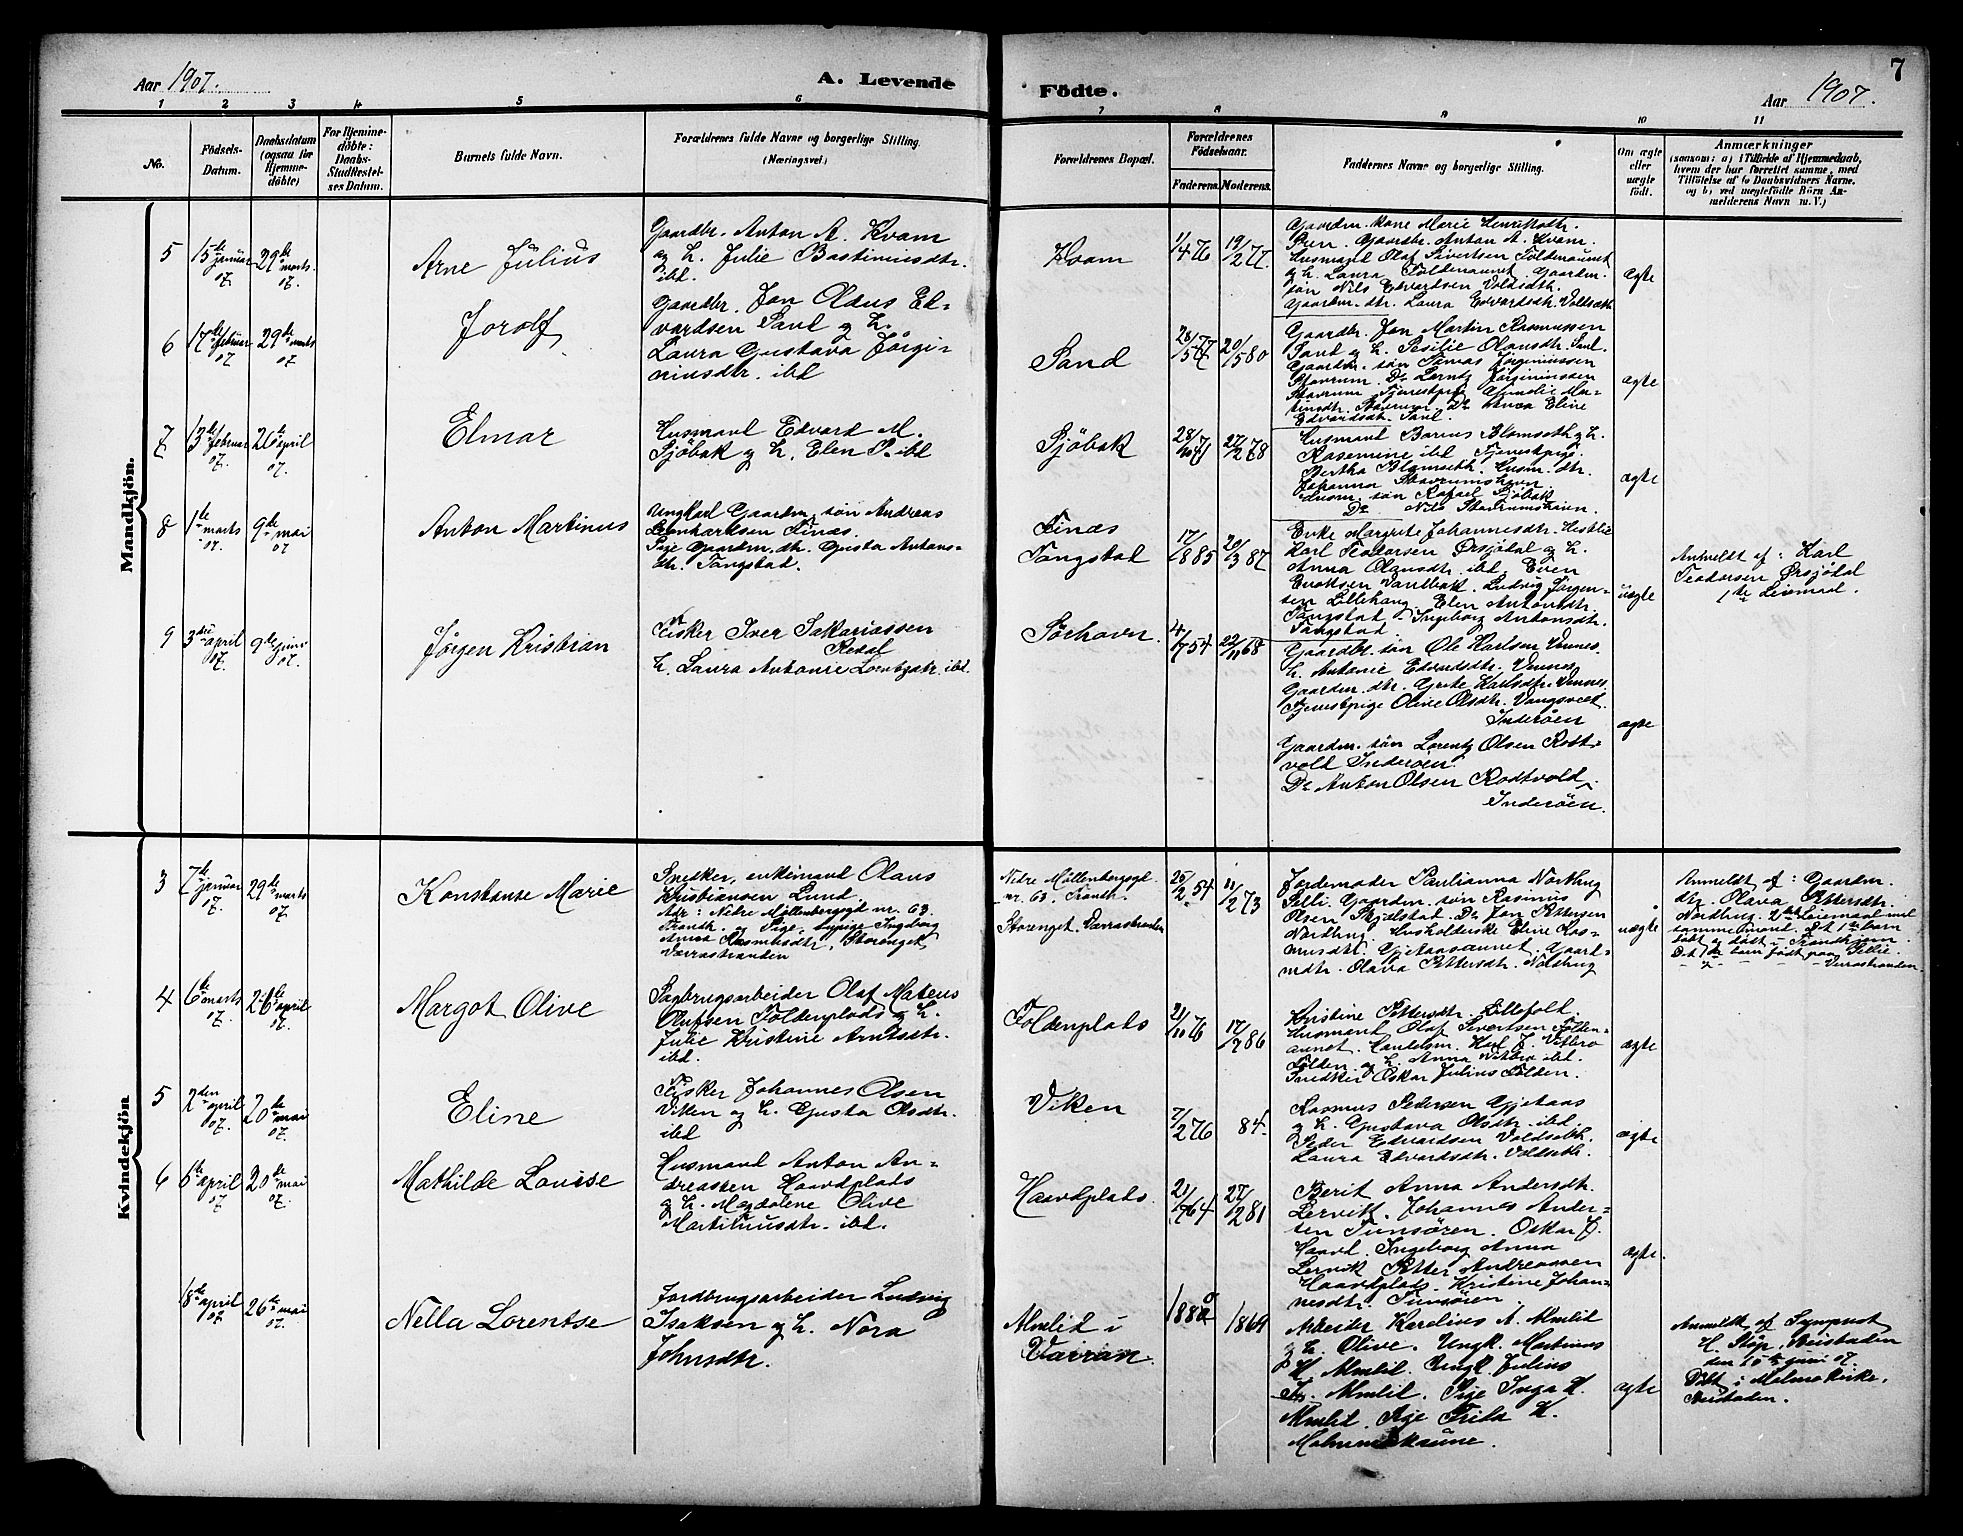 Aar 1907.
A. Levende
Födte.
7
Aar 1907.
1 2 3 4 5 6 7 8 9 10 11
No.
Födsels-
Datum.
Daabsdatum
(ogsaa for
Hjemme-
döbte)
For Hjemme-
döbte:
Daabs-
Stadfæstel-
ses Datum.
Barnets fulde Navn.
Forældrenes fulde Navne og borgerlige Stilling.
(Næringsvei.)
Forældrenes Bopæl.
Forældrenes
Födselsaar.
Faderens. Moderens.
Faddernes Navne og borgerlige Stilling.
Om ægte
eller
uægte
födt.
Anmærkninger
(saasom: a) i Tilfælde af Hjemmedaab,
hvem der har forrettet samme, med
Tilföielse af to Daabsvidners Navne,
og b) ved uægtefödte Börn An-
melderens Navn m. V.)
Mandkjön.
5
15de januar 07
29de marts 07.
Arne Julius
Gaardbr. Anton A. Kvam
og H. Julie Bastiniusdtr.
ibd.
Kvam
1/4 76
19/2 77.
Gaardm. kone Marie Henriksdtr.
Gaardbr. Anton A. Kvam.
Husmand Olaf Sivertsen Foldenaunet
og H. Laura Foldenaunet. Gaardm.
søn Nils Edvardsen Voldseth.
Gaardm. dtr. Laura Edvardsdtr. Voldseth
ægte
6
17de februar 07
29de marts 07
Jorolf
Gaardbr. Jon Olaus Ed-
vardsen Sand og H.
Laura Gustava Jørgi-
niusdtr. ibd
Sand
28/5 77
20/5 80
Gaardbr. Jon Martin Rasmussen
Sand og H. Olausdtr. Sand.
Gaardbr. søn Jørginiussen
Stavrum. Do Lorntz Jørginiussen
Stavrum. Tjenestpige
Stavrum. Do Anna Eline
Edvardsdtr. Sand.
ægte
7
13de februar 07.
26de april 07.
Elmar
Husmand Edvard M.
Sjöbak og H. Elen P. ibd
Sjöbak
28/10 71
27/2 78
Husmand Barius Blomseth og H.
Rasemine ibd Tjenestpige
Bertha Blomseth. Husm. dtr.
Johanna Stavrumshavn.
Husm. søn Rafael Sjöbak
Do Nils Stavrumshavn.
ægte
8
1ste marts 07.
9de mai 07
Anton Martinus
Ungkarl Gaardm. søn Andreas
Lenhartsen Finæs.
Pige Gaardm. dtr. Gusta Antons-
dtr. Tangstad.
Finæs
Tangstad
17/8 85
20/3 87
Enke Margrete Johannesdtr. Hestlie
Karl Teodorsen Ørsjødal og H.
Anna Olausdtr. ibd. Even
Ludvig Jørgen-
sen Lillehaug. Elen Antonsdtr.
Tangstad. Ingeborg Antonsdtr.
Tangstad.
uægte
Anmeldt af: Karl
Teodorsen Ørsjødal
1ste Leiermaal.
9
3die april 07.
9de juni 07.
Jørgen Kristian
Fisker Iver Sakariassen
H. Laura Antonie Lorntzdtr. ibd.
Sörhavn.
4/7 54
22/11 68
Gaardbr. søn Ole Karlsen Vennes.
H. Antonie Edvardsdtr. Vennes
Gaardm. dtr. Grete Karlsdtr. Vennes.
Tjenestpige Olive Olsdtr. Vangsveet
Inderøen
Gaardm. søn Lorentz Olsen Rodt-
vold Inderøen.
Do Anton Olsen Rodtvold
Inderøen.
ægte
Kvindekjön
3
7de januar 07.
29de marts 07
Konstanse Marie
Snedker, enkemand Olaus
Kristiansen Lund
Adr: Nedre Möllenbergsgd nr. 63.
Trondh. og Pige, Ingeborg
Anna Rasmusdtr. Storenget
Værrastranden
Nedre Möllenbergsgd.
nr. 63, Trondh.
Storenget. Værrastranden
26/2 54
11/2 73
Jordemoder Paulianna Nordhug
Gaardm. søn Rasmus
Olsen Skjelstad. Do Jon Pettersen
Nordhug Husholderske Eline Ras-
musdtr. Gjetaasaunet. Gaard-
mdtr. Olava Pettersdtr. Nordhug
uægte
Anmeldt af: Gaardm.
dtr. Olava Pettersdtr.
Nordhug. 2det Leiermaal med
samme mand. Det 1ste barn
födt og dödt i Trondhjem.
barn födt paa
Værrastranden.
4
6te marts 07.
26de april 07.
Margot Olive
Sagbrugsarbeider Olaf Mateus
Olufsen Foldenplads og H.
Julie Kristine Arntsdtr.
ibd.
Foldenplads
21/10 76
17/7 86
Kristine Pettersdtr. Lillefold.
Husmand Olaf Sivertsen Folden-
aunet. Handelsm. Karl J. Vibbro
Folden og H. Anna Vibbro ibd.
Snedker Oskar Julius Folden.
ægte
5
2den april 07.
20de mai 07.
Eline
Fisker Johannes Olsen
Viken og H. Gusta Olsdtr.
ibd
Viken
7/2 76
84.
Rasmus Pedersen Gjetaas
og H. Gustava Olsdtr. ibd.
Peder Edvardsen Voldseth.
Laura Edvardsdtr. Voldseth.
ægte
6
6te april 07
20de mai 07.
Mathilde Louise
Husmand Anton An-
dreassen Haavdplads
og H. Magdalene Olive
Martiniusdtr. ibd.
Haavdplads.
21/7 64
27/2 81
Berit Anna Andersdtr.
Lervik. Johannes Ander-
sen Tunsören. Oskar J.
Haavd. Ingeborg Anna
Lervik Petter Andreassen
Haavdplads. Kristine Johan-
nesdtr. Tunsören.
ægte.
18de april 07
26de mai 07.
Nella Lorentse
Jordbrugsarbeider Ludvig
Isaksen og H. Nora
Johnsdtr.
Almlid i
Værran.
1880
1869
Arbeider Karelius A. Almlid
og H. Olive. Ungk. Martinus
H. Almlid. Ungk. Julius
Fr. Almlid. Pige Inga K.
Almlid. Pige Frida K.
ægte
Anmeldt af Sognepræst
H. Støp, Beitstaden
den 10de juni 07.
Döbt i Malmo Kirke,
Beitstaden.